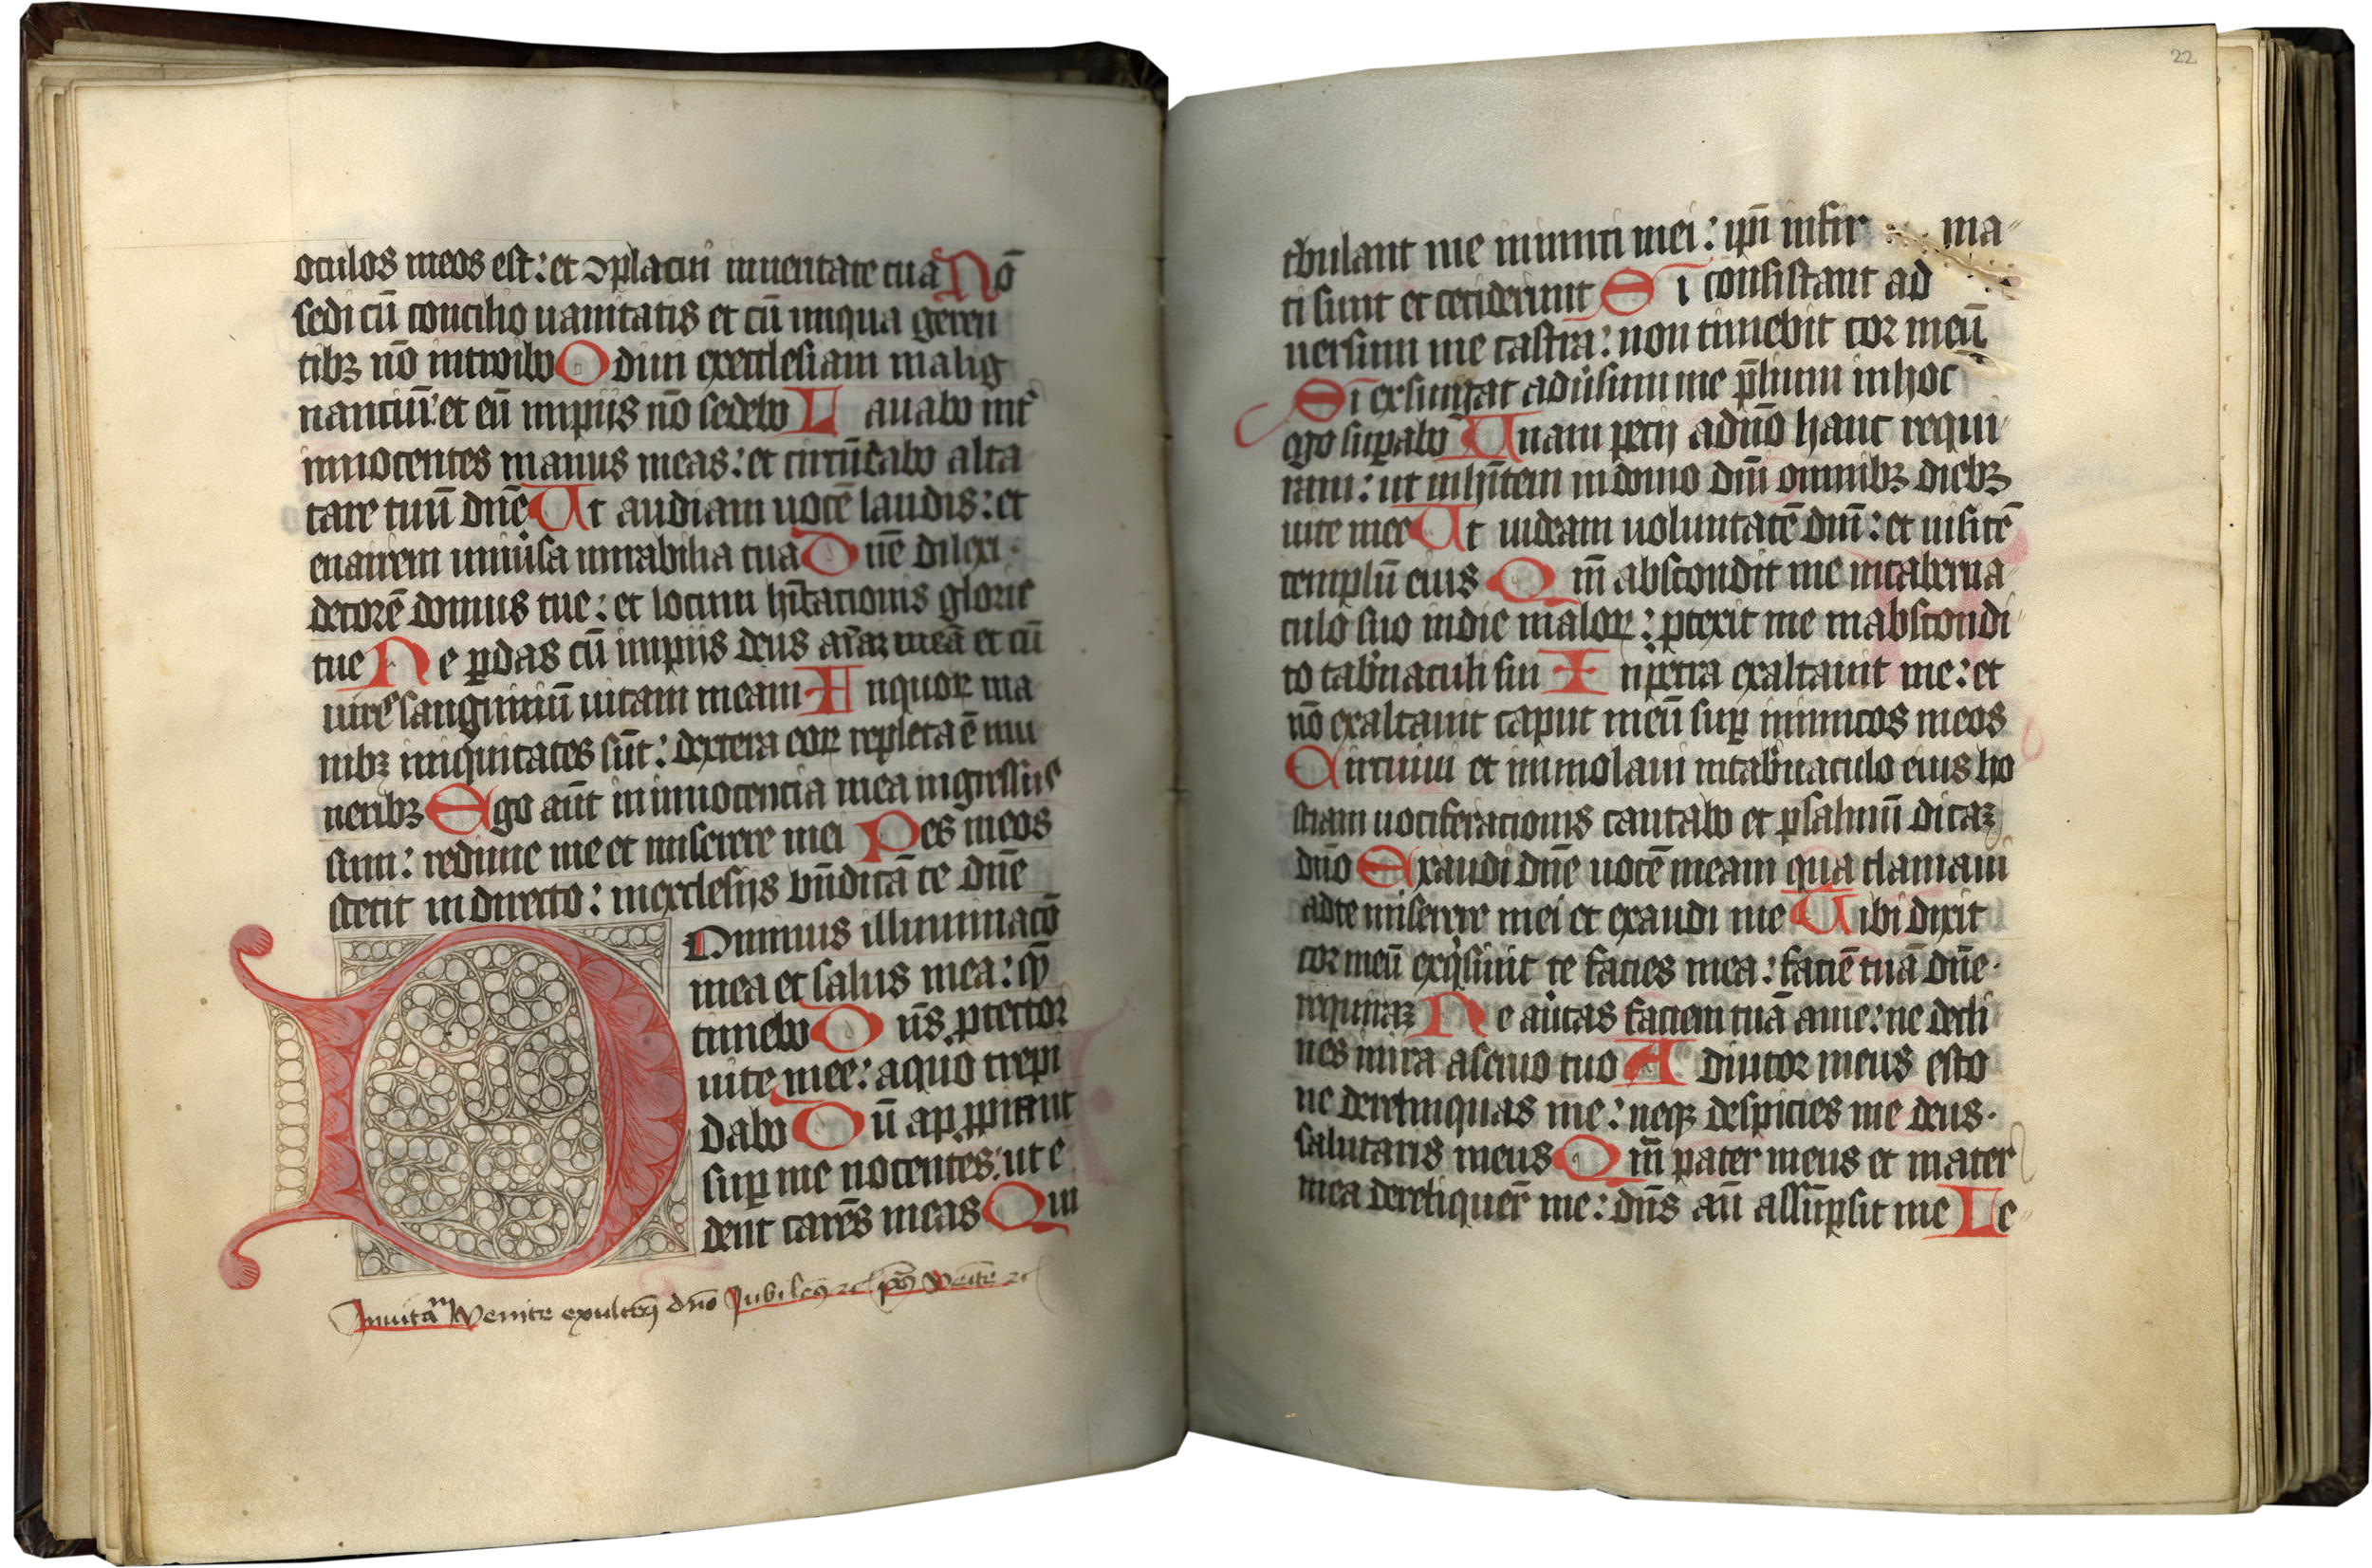 oculos meos est: et ↄplacui inueritate tua Nō
sedi cū concilio uanitatis et cū iniqua geren
tibꝫ nō introibo Odiui exeeclesiam malig
nantiuī: et cū impiis nō sedebo Lauabo int̄
innocentes manus meas: et circūdabo alta
tare tuū dn̄e Ut audiam uocē laudis: et
enarrem uniūsa mirabilia tua Dn̄e dilexi
decorē domus tue: et locum hītationis glorie
tue Ne ꝑdas cū impiis deus aīaꝫ meā et cū
uirꝭ sanguiniū uitam meam Inquoꝝ ma
nibꝫ iniquitates sūt: dextera eoꝝ repleta ē mu
neribꝫ Ego aūt in innocentia mea ingressus
sum: redime me et miserere mei Pes meos
stetit in directo: inecclesiis bn̄dicā te dn̄e
Dominus illuminacō
mea et salus mea: qͫ
timebo Dn̄s ꝓtector
uite mee: aquo trepi
dabo Dū apꝓpiant
suꝑ me nocentes: ut e
dent carēs meas Qui
Inuitaᵐ Venite exultemꝰ dn̄o Jubilemꝰ ꝛc ps̄ Venite ꝛc
22
tribulant me inimici mei: ip̄i infir ma
ti sunt et ceciderunt Si consistant ad
uersum me castra: non timebit cor meū
Si exsurgat adūsum me p̄lium inhoc
ego suꝑabo Unam pecii adn̄o hanc requi
ram: ut inhītem indomo dn̄i omnibꝫ diebꝫ
uite mee Ut uideam uoluntatē dn̄i: et uisitē
templū eius Qm̄ abscondit me intaberna
culo suo indie maloꝝ: ꝓtexit me inabscondi
to tabn̄aculi sui Inpetra exaltauit me: et
nō exaltauit caput meū suꝑ inimicos meos
Circuiui et immolaui intabn̄aculo eius ho
stiam uociferacionis cantabo et psalmū dicaꝫ
dn̄o Exaudi dn̄e uocē meam qua clamaui
adte miserere mei et exaudi me Tibi dixit
cor meū exqͥsiuit te facies mea: faciē tuā dn̄e
requiraꝫ Ne aūtas faciem tuā ame: ne decli
nes inira aseruo tuo Adiutor meus esto
ne derelinquas me: neqꝫ despicies me deus
salutaris meus Qm̄ pater meus et mater
mea dereliquer̄ me: dn̄s aū assūpsit me Le